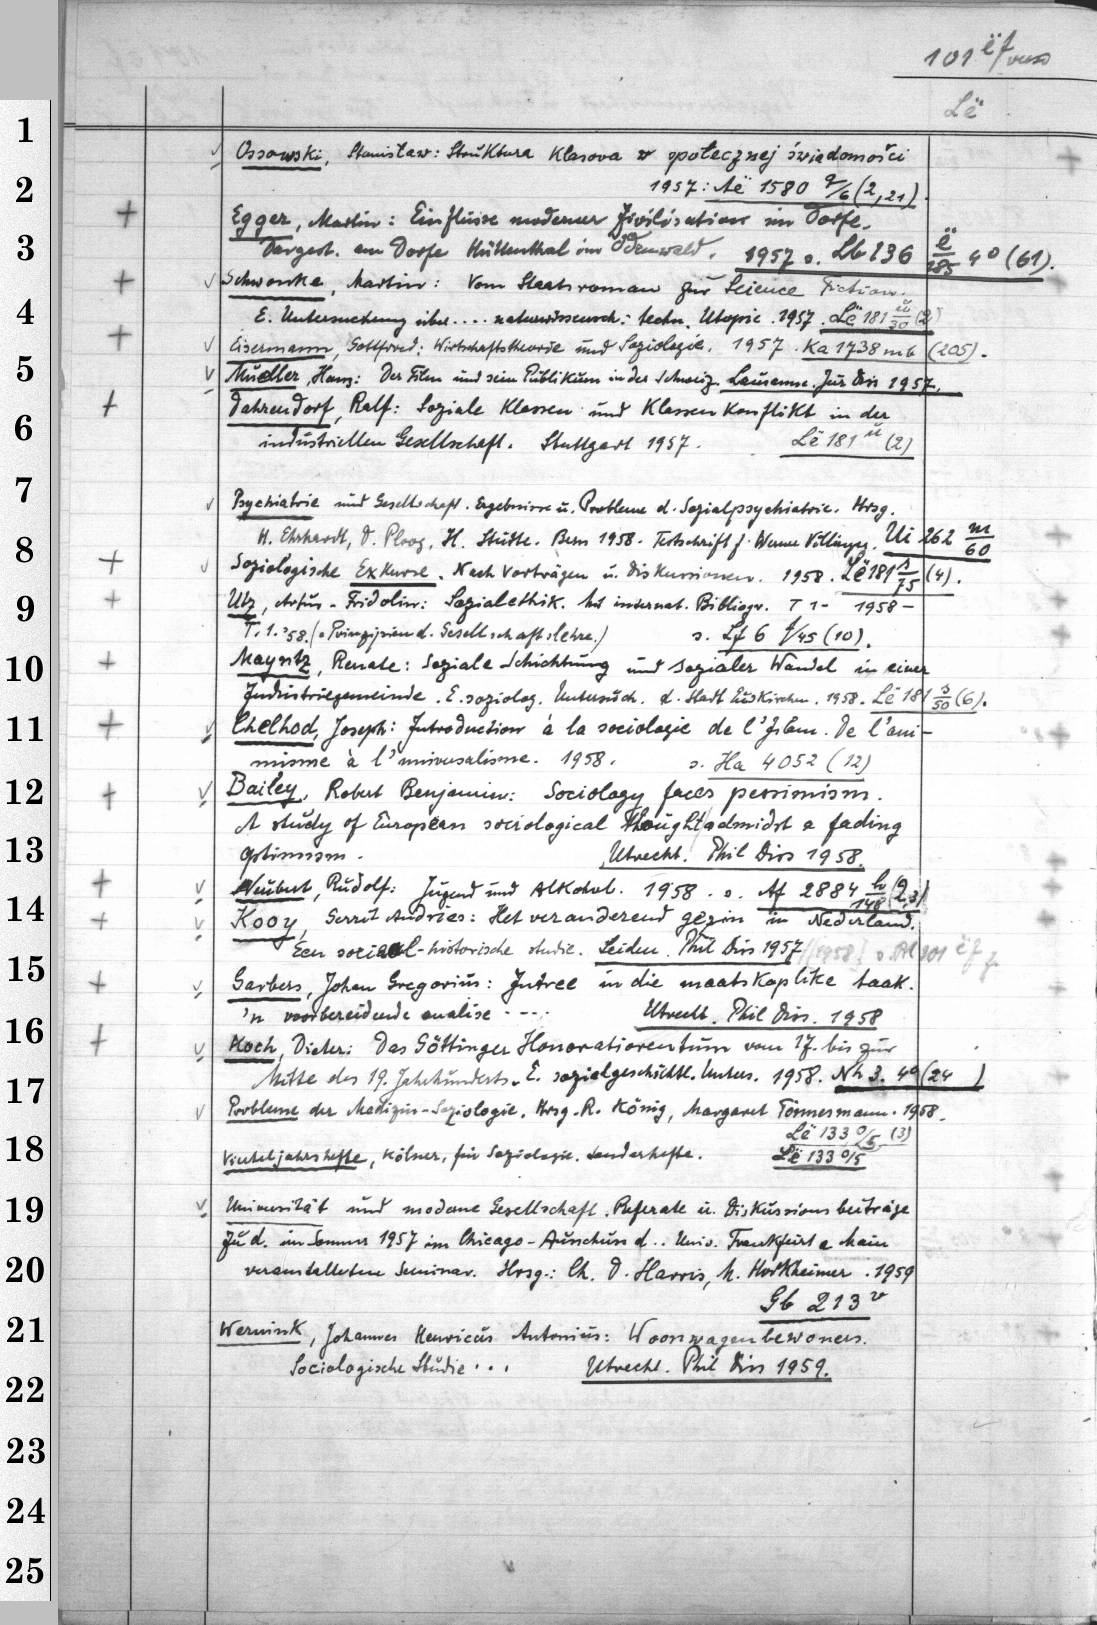 101 ëf verso
Lë
1
Ossowski, Stanisław: Struktura klasova w społecznej świadomości
2
1957: Aë 1580 q/6 (2,21).
Egger, Martin: Einflüsse moderner Zivilisation im Dorfe.
3
Dargest. am Dorfe Hüttenthal im Odenwald. 1957 s. Lb 136 ë/285 4° (61).
Schwonke, Martin: Vom Staatsroman zur Science Fiction.
4
E. Untersuchung über .... naturwissensch.-techn. Utopie. 1957. Lë 181 ü/30 (2)
Eisermann, Gottfried: Wirtschaftstheorie und Soziologie. 1957. Ka 1738 mb (205).
5
Mueller, Hans: Der Film und sein Publikum in der Schweiz. Lausanne. Jur Diss 1957.
Dahrendorf, Ralf: Soziale Klassen und Klassenkonflikt in der
6
industriellen Gesellschaft. Stuttgart 1957. Lë 181 ü (2)
7
Psychiatrie und Gesellschaft. Ergebnisse u. Probleme d. Sozialpsychiatrie. Hrsg.
H. Ehrhardt, D. Ploog, H. Stutte. Bern 1958. Festschrift f. Werner Villinger. Ui 262 m/60
8
Soziologische Exkurse. Nach Vorträgen u. Diskussionen. 1958. Lë 181 s/75 (4).
9
Utz, Arthur-Fridolin: Sozialethik. Mit internat. Bibliogr. T 1- 1958-
T. 1. '58. (: Prinzipien d. Gesellschaftslehre.) s. Lf 6 f/45 (10).
10
Mayntz, Renate: Soziale Schichtung und sozialer Wandel in einer
Industriegemeinde. E. soziolog. Untersuch. d. Stadt Euskirchen. 1958. Lë 181 s/50 (6).
11
Chelhod, Joseph: Introduction à la sociologie de l'Islam. De l'ani-
misme à l'universalisme. 1958. s. Ha 4052 (12)
12
Bailey, Robert Benjamin: Sociology faces pessimism.
A study of European sociological thought admidst a fading
13
optimism. Utrecht. Phil Diss 1958.
Neubert, Rudolf: Jugend und Alkohol. 1958. s. Af 2884 h/148 (2,3)
14
Kooy, Gerrit Andries: Het veranderend gezin in Nederland.
Een sociaal-historische studie. Leiden. Phil Diss 1957 [1958] s. Al 101 ëf
15
Garbers, Johan Gregorius: Intree in die maatskaplike taak.
'n voorbereidende analise .... Utrecht. Phil Diss. 1958
16
Koch, Dieter: Das Göttinger Honoratiorentum vom 17. bis zur
17
Mitte des 19. Jahrhunderts. E. sozialgeschichtl. Unters. 1958. Nh 3. 4° (24 )
Probleme der Medizin-Soziologie. Hrsg. R. König, Margaret Tönnesmann. 1958.
Lë 133 o/5 (3)
18
Vierteljahrshefte, Kölner, für Soziologie. Sonderhefte. Lë 133 o/5
19
Universität und moderne Gesellschaft. Referate u. Diskussionsbeiträge
zu d. im Sommer 1957 im Chicago-Ausschuss d.. Univ. Frankfurt a Main
20
veranstalteten Seminar. Hrsg.: Ch. D. Harris, M. Horkheimer. 1959
Gb 213 v
21
Wernink, Johannes Henricus Antonius: Woonwagenbewoners.
Sociologische Studie ... Utrecht. Phil Diss 1959.
22
23
24
25